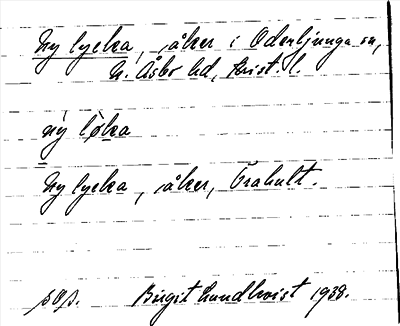 Ny lycka, åker i Oderljunga sn,
N. Åsbo hd, Krist. l.
ný lò̱ka
Ny lycka, åker, Brahult.
sOp. Birgit Lundkvist 1938.